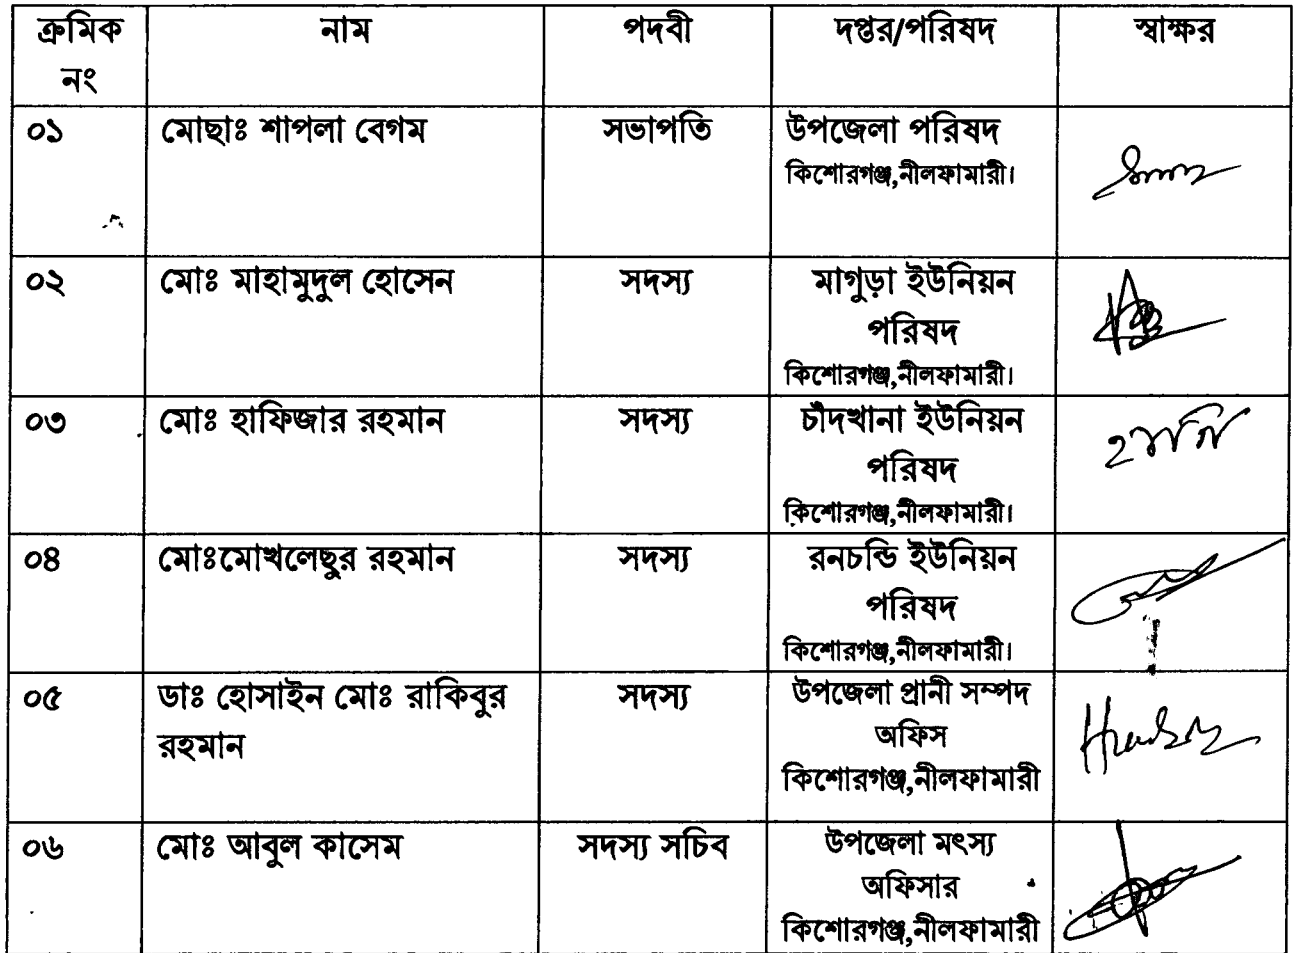 ক্রমিক নং নাম পদবী দপ্তর/পরিষদ স্বাক্ষর
০১ মোছাঃ শাপলা বেগম সভাপতি উপজেলা পরিষদ
কিশোরগঞ্জ,নীলফামারী।
০২ মোঃ মাহামুদুল হোসেন সদস্য মাগুড়া ইউনিয়ন
পরিষদ
কিশোরগঞ্জ,নীলফামারী।
০৩ মোঃ হাফিজার রহমান সদস্য চাঁদখানা ইউনিয়ন
পরিষদ
কিশোরগঞ্জ,নীলফামারী।
০৪ মোঃমোখলেছুর রহমান সদস্য রনচন্ডি ইউনিয়ন
পরিষদ
কিশোরগঞ্জ,নীলফামারী।
০৫ ডাঃ হোসাইন মোঃ রাকিবুর
রহমান সদস্য উপজেলা প্রানী সম্পদ
অফিস
কিশোরগঞ্জ,নীলফামারী
০৬ মোঃ আবুল কাসেম সদস্য সচিব উপজেলা মৎস্য
অফিসার
কিশোরগঞ্জ,নীলফামারী